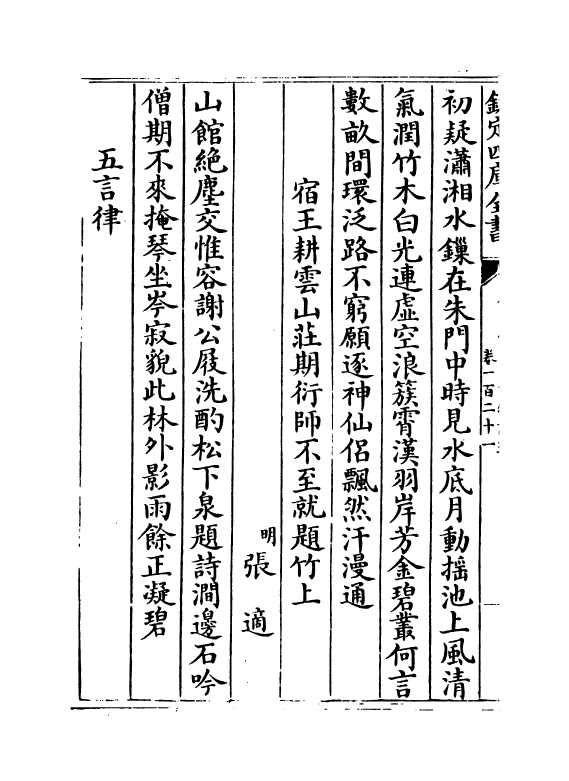 欽定四庫全書
卷一百二十一
初疑瀟湘水鏁在朱門中時見水底月動揺池上風清
氣潤竹木白光連虛空浪簇霄漢羽岸芳金碧叢何言
數畝間環泛路不窮願逐神仙侣飄然汗漫通
宿王耕雲山莊期衍師不至就題竹上
明張適
山館絶塵交惟容謝公屐洗酌松下泉題詩澗邊石吟
僧期不來掩琴坐岑寂貌此林外影雨餘正凝碧
五言律